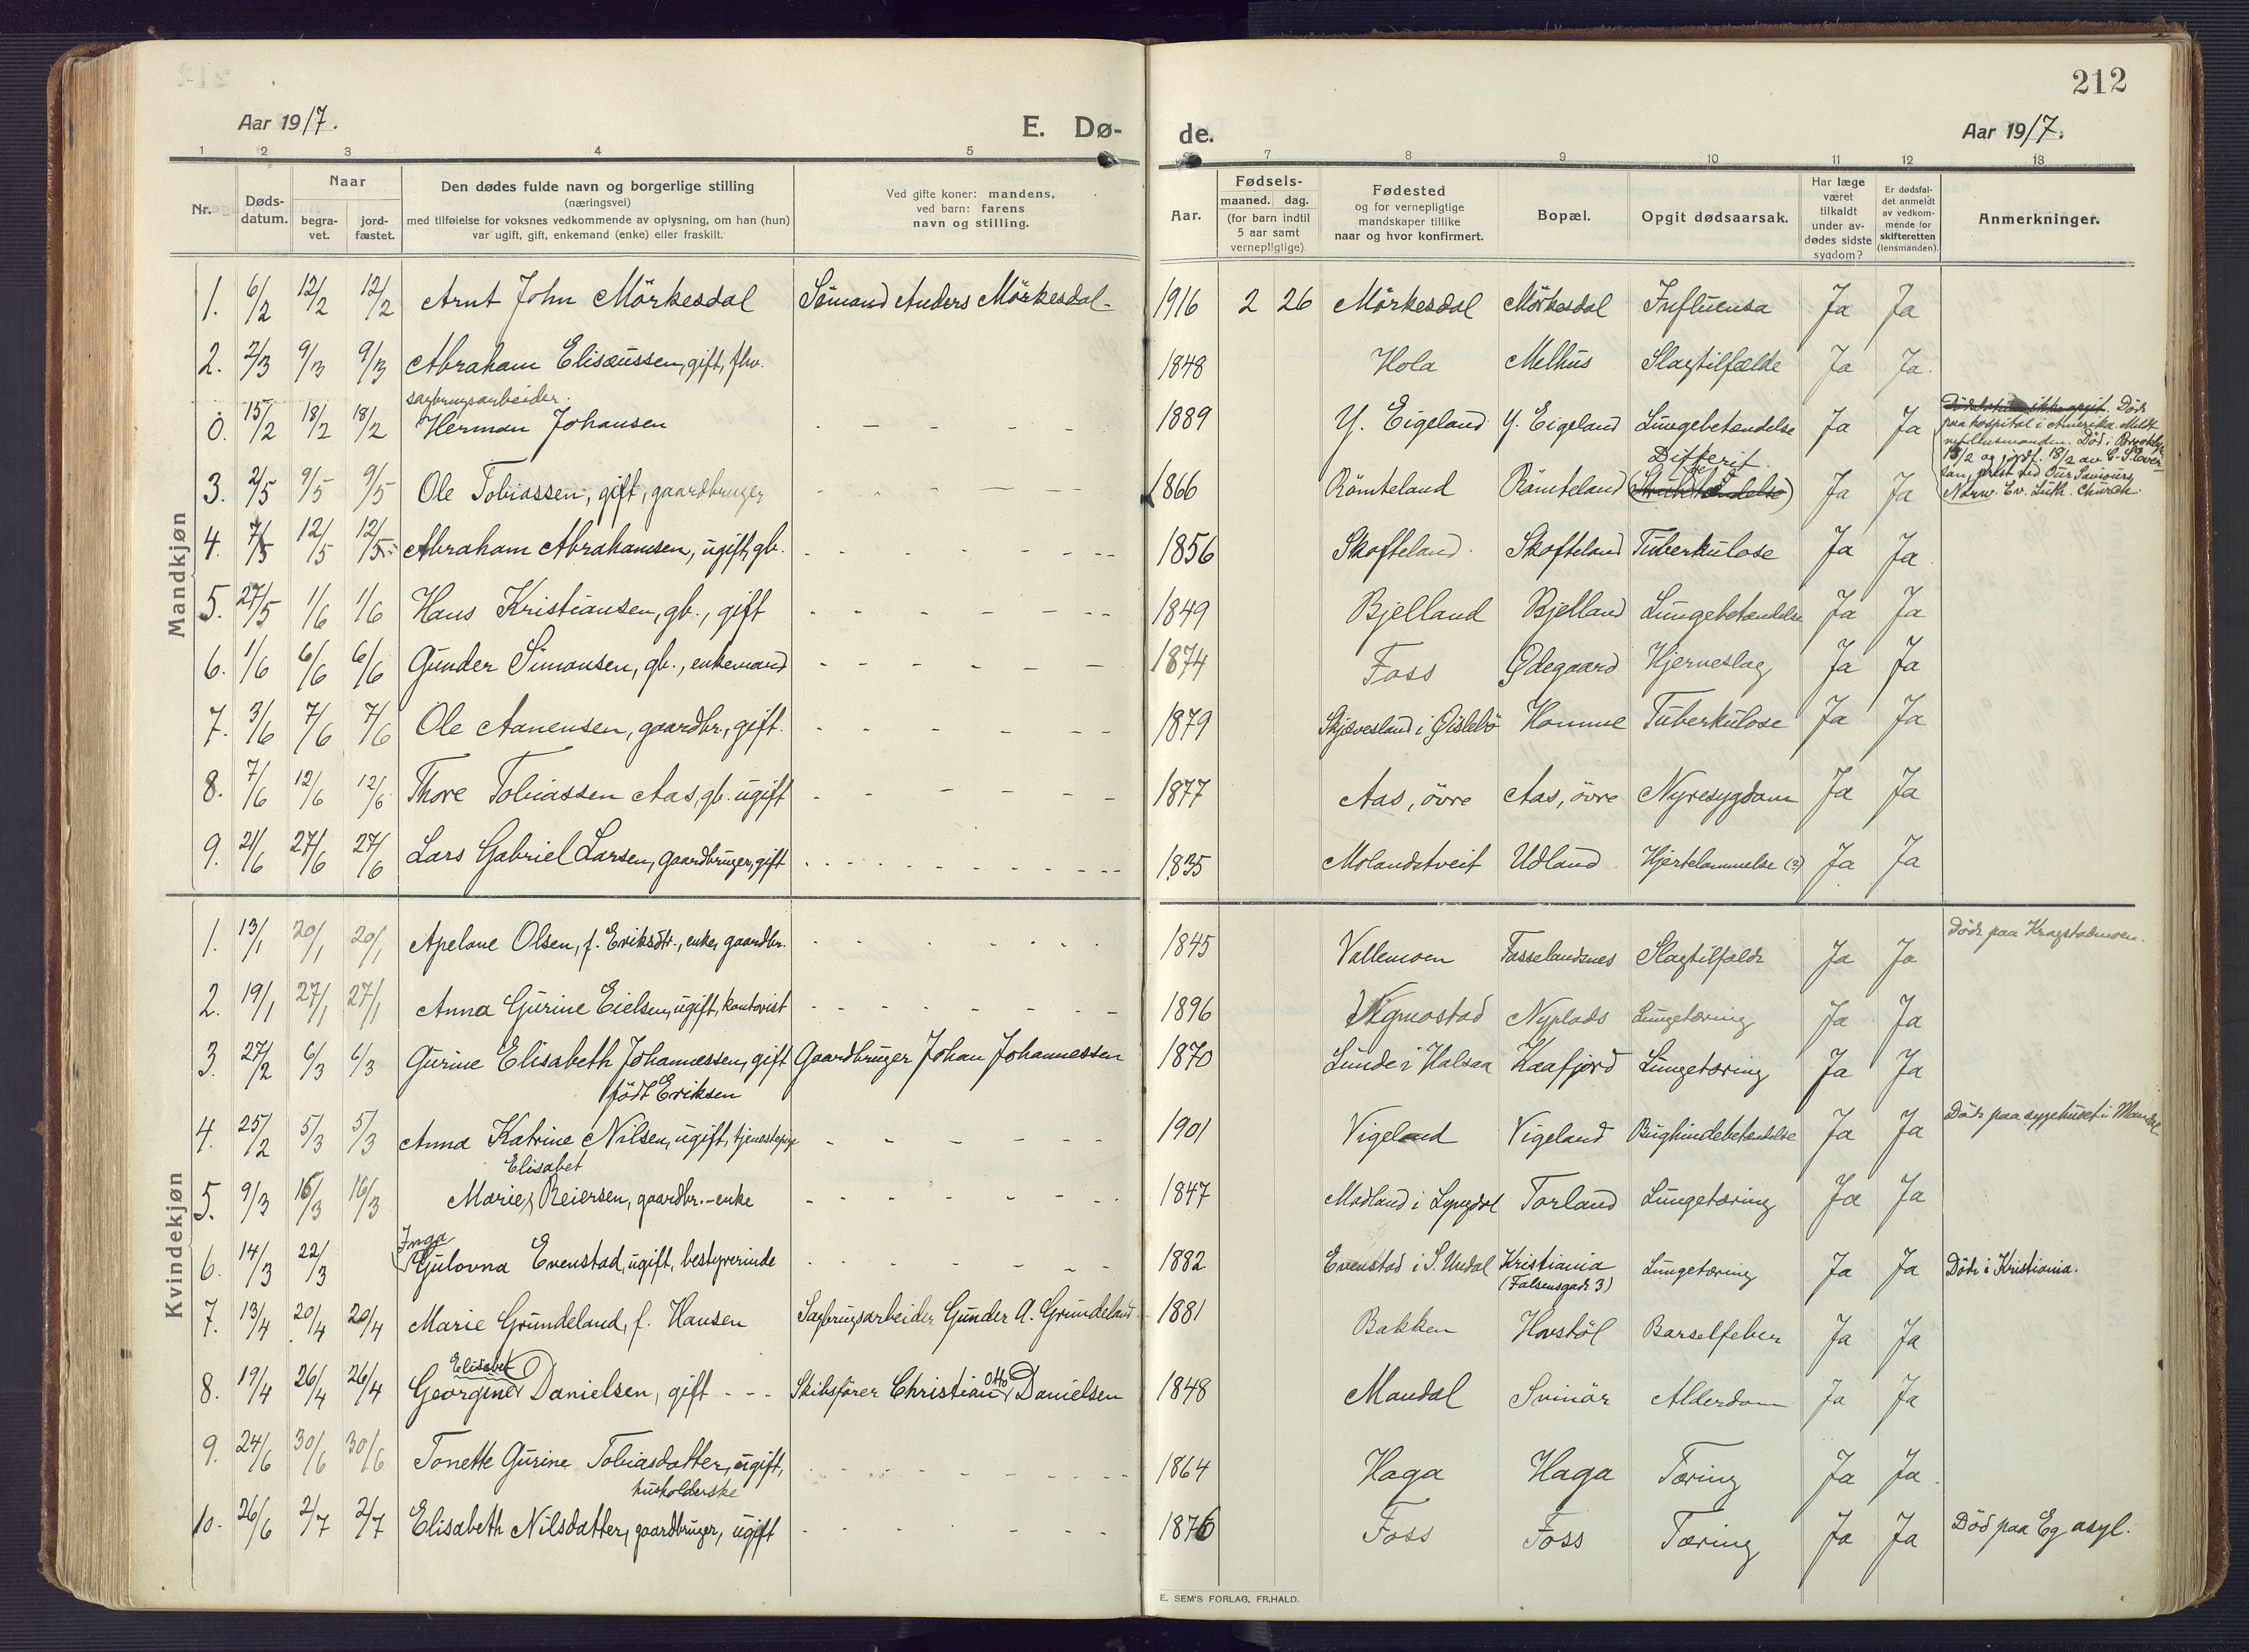 212
Aar 1917.
E. Dø-
de.
Aar 1917.
1 2 3 4 5 7 8 9 10 11 12 13
Nr.
Døds-
datum.
Naar
begra-
vet.
jord-
fæstet.
Den dødes fulde navn og borgerlige stilling
(næringsvei)
med tilføielse for voksnes vedkommende av oplysning, om han (hun)
var ugift, gift, enkemand (enke) eller fraskilt.
Ved gifte koner: mandens,
ved barn: farens
navn og stilling.
Aar.
Fødsels-
maaned. dag.
(for barn indtil
5 aar samt
vernepligtige).
Fødested
og for vernepligtige
mandskaper tillike
naar og hvor konfirmert.
Bopæl.
Opgit dødsaarsak.
Har læge
været
tilkaldt
under av-
dødes sidste
sygdom?
Er dødsfal-
det anmeldt
av vedkom-
mende for
skifteretten
(lensmanden).
Anmerkninger.
Mandkjøn
1. 6/2 12/2 12/2 Arnt John Mörkesdal Sömand Anders Mörkesdal - 1916 2 26 Mörkesdal Mörkesdal Influensa Ja Ja
2. 2/3 9/3 9/3 Abraham Elisæussen, gift, fhv. 1848 Hola Melhus Slagtilfælde Ja Ja.
sagbrugsarbeider.
0. 15/2 18/2 18/2 Herman Johansen - - - - - 1889 Y. Eigeland Y. Eigeland Lungebetændelse Ja Ja
Död paa hospital i Amerika. Död i Brooklyn 15/2 og jordf. 18/2 av C. S. prest ved Our Saviours Norw. Ev. Luth. Church.
Differit
3. 2/5 9/5 9/5 Ole Tobiassen, gift, gaardbruger - - - - - 1866 Römteland Römteland Ja Ja
4. 7/5 12/5 12/5 Abraham Abrahamsen, ugift, gb. - - - - - 1856 Skofteland. Skofteland Tuberkulose Ja Ja
5. 27/5 1/6 1/6 Hans Kristiansen, gb., gift - - - - - 1849 Bjelland Bjelland Lungebetændelse Ja Ja
6. 1/6 6/6 6/6 Gunder Simonsen, gb., enkemand - - - - - 1874 Foss Ødegaard Hjerneslag Ja Ja
7. 3/6 7/6 7/6 Ole Aanensen, gaardbr., gift. - - - - - 1879 Skjævesland i Øislebö Homme Tuberkulose Ja Ja
8. 7/6 12/6 12/6 Thore Tobiassen Aas, gb. ugift - - - - - 1877 Aas, övre Aas, övre Nyresygdom Ja Ja
9. 21/6 27/6 27/6 Lars Gabriel Larsen, gaardbruger, gift - - - - - 1835 Molandstveit Udland Hjertelammelse (?) Ja Ja
Kvindekjøn
1. 13/1 20/1 20/1 Apelone Olsen, f. Eriksdtr., enke, gaardbr. - - - - - 1845 Vallemoen Fosselandsnes Slagtilfælde Ja Ja Död paa Kragstadmoen.
2. 19/1 27/1 27/1 Anna Gurine Eielsen, ugift, kontorist - - - - - 1896 Nyplads Lungetæring Ja Ja
3. 27/2 6/3 6/3 Gurine Elisabeth Johannessen, gift Gaardbruger Johan Johannessen 1870 Lunde i Halsaa Kaafjord Lungetæring Ja Ja
födt Eriksen
4. 25/2 5/3 5/3 Anna Katrine Nilsen, ugift, tjenestepige - - - - - 1901 Vigeland Vigeland Bughindebetændelse Ja Ja Död paa sygehuset i Mandal
Elisabet
5. 9/3 16/3 16/3 Marie Reiersen, gaardbr.-enke - - - - - 1847 Madland i Lyngdal Torland Lungetæring Ja Ja
Inga
6. 14/3 22/3 Gulovna Evenstad, ugift, bestyrerinde - - - - - 1882 Evenstad i S. Undal Kristiania Lungetæring Ja Ja Död i Kristiania.
(Falsensgade 3)
7. 13/4 20/4 20/4 Marie Grundeland, f. Hansen Sagbrugsarbeider Gunder A. Grundeland 1881 Bakken Hovstöl Barselfeber Ja Ja
Elisabet Otto
8. 19/4 26/4 26/4 Georgine Danielsen, gift - - - Skibsförer Christian Danielsen 1848 Mandal Svinör Alderdom Ja Ja
9. 24/6 30/6 30/6 Tonette Gurine Tobiasdatter, ugift, - - - - - 1864 Haga Haga Tæring Ja Ja.
husholderske
10. 26/6 2/7 2/7 Elisabeth Nilsdatter, gaardbruger, ugift - - - - - 1876 Foss Foss Tæring Ja Ja Död paa Eg asyl.
E. SEM'S FORLAG, FR.HALD.